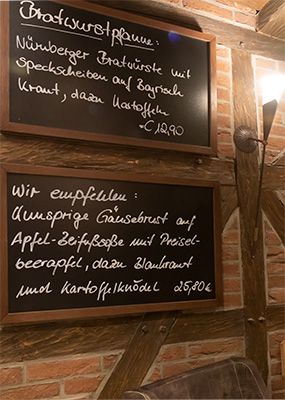 Bratwurstpfanne:
Nürnberger Bratwürste mit
Speckscheiben auf Bayrisch
Kraut, dazu Kartoffeln
€ 12,90
Wir empfehlen:
Knusprige Gänsebrust auf
Apfel-Beifußsoße mit Preisel-
beerapfel, dazu Blaukraut
und Kartoffelknödel 25,80 €